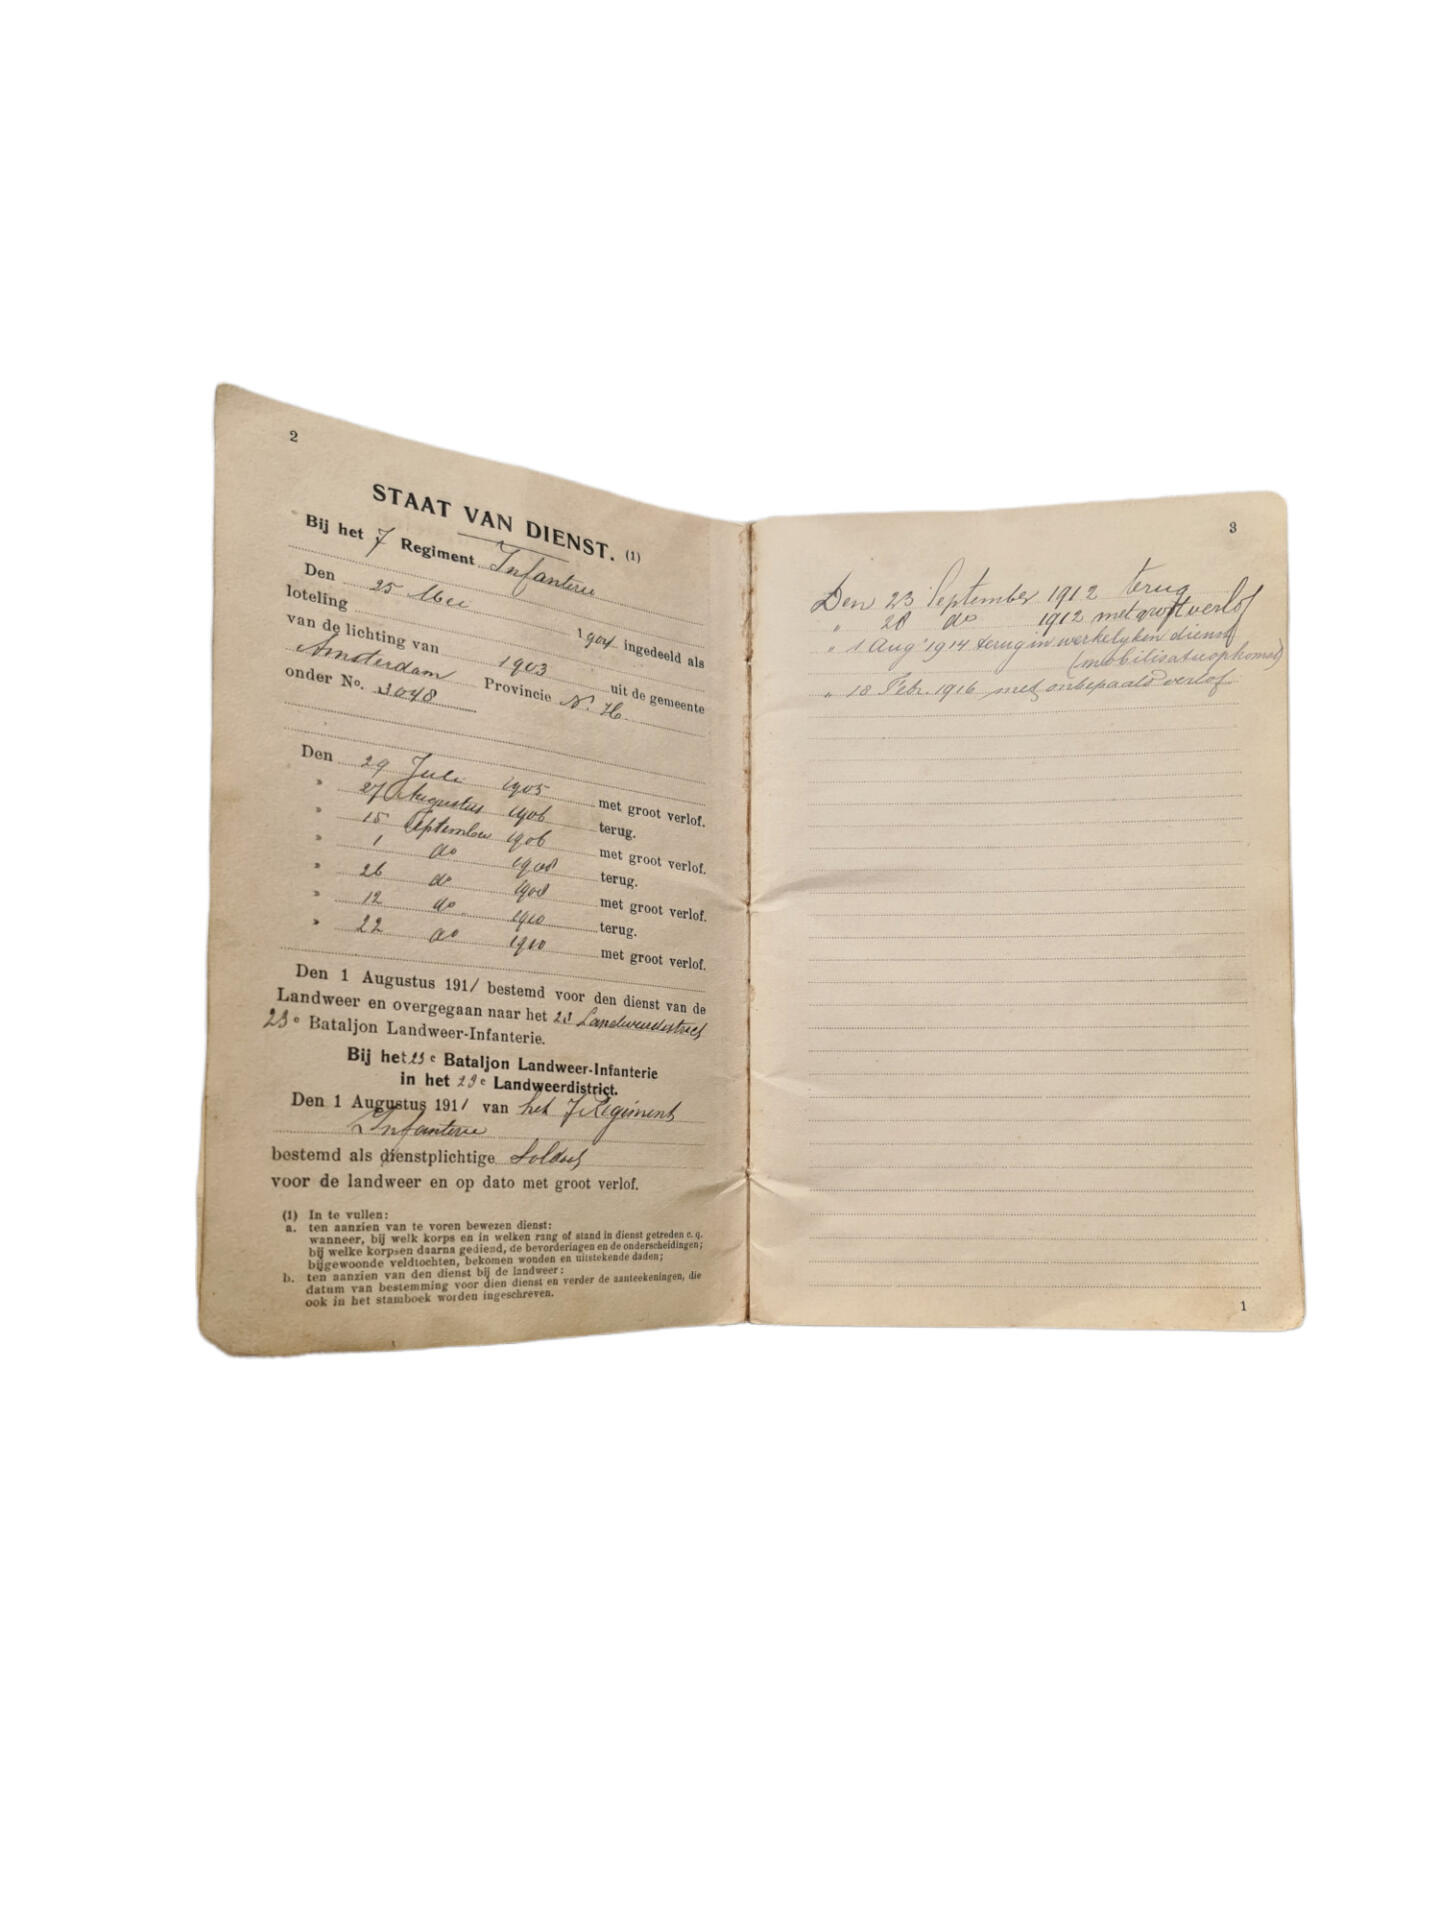 2
STAAT VAN DIENST. (1)
Bij het 7 Regiment Infanterie
Den 25 Mei 1904 ingedeeld als
loteling
van de lichting van 1903 uit de gemeente
Amsterdam Provincie N. H.
onder No. 3048
Den 29 Juli 1905 met groot verlof.
" 27 Augustus 1906 terug.
" 15 September 1906 met groot verlof.
" 1 do 1908 terug.
" 26 do 1908 met groot verlof.
" 12 do 1910 terug.
" 22 do 1910 met groot verlof.
Den 1 Augustus 1911 bestemd voor den dienst van de
Landweer en overgegaan naar het 23 Landweerdistrict
23e Bataljon Landweer-Infanterie.
Bij het 23e Bataljon Landweer-Infanterie
in het 23e Landweerdistrict.
Den 1 Augustus 1911 van het 7 Regiment
Infanterie
bestemd als dienstplichtige Soldaat
voor de landweer en op dato met groot verlof.
(1) In te vullen:
a. ten aanzien van te voren bewezen dienst:
wanneer, bij welk korps en in welken rang of stand in dienst getreden c. q.
bij welke korpsen daarna gediend, de bevorderingen en de onderscheidingen;
bijgewoonde veldtochten, bekomen wonden en uitstekende daden;
b. ten aanzien van den dienst bij de landweer:
datum van bestemming voor dien dienst en verder de aanteekeningen, die
ook in het stamboek worden ingeschreven.
3
Den 23 September 1912 terug
" 28 do 1912 met groot verlof
" 1 Aug 1914 terug in werkelyken dienst
(mobilisatieopkomst)
" 18 Febr. 1916 met onbepaald verlof
1